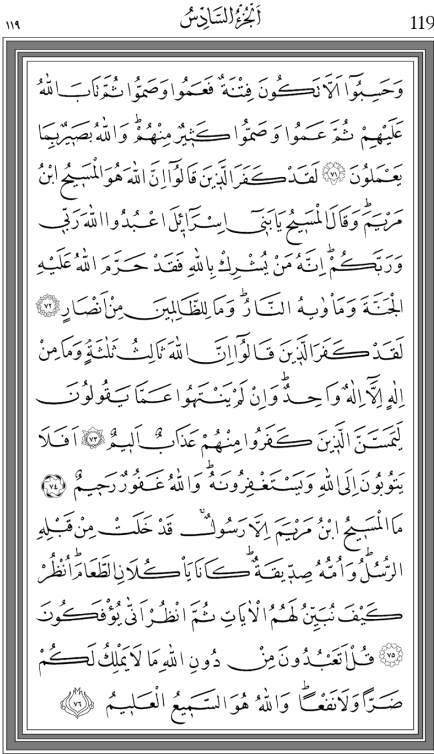 119 اَلْجُزْءُ السَّادِسُ ١١٩
وَحَسِبُٓوا اَلَّا تَكُونَ فِتْنَةٌ فَعَمُوا وَصَمُّوا ثُمَّ تَابَ اللّٰهُ
عَلَيْهِمْ ثُمَّ عَمُوا وَصَمُّوا كَث۪يرٌ مِنْهُمْۜ وَاللّٰهُ بَص۪يرٌ بِمَا
يَعْمَلُونَ ﴿٧١﴾ لَقَدْ كَفَرَ الَّذ۪ينَ قَالُٓوا اِنَّ اللّٰهَ هُوَ الْمَس۪يحُ ابْنُ
مَرْيَمَۜ وَقَالَ الْمَس۪يحُ يَا بَن۪ٓي اِسْرَٓائ۪لَ اعْبُدُوا اللّٰهَ رَبّ۪ي
وَرَبَّكُمْۜ اِنَّهُ مَنْ يُشْرِكْ بِاللّٰهِ فَقَدْ حَرَّمَ اللّٰهُ عَلَيْهِ
الْجَنَّةَ وَمَأْوٰيهُ النَّارُۜ وَمَا لِلظَّالِم۪ينَ مِنْ اَنْصَارٍ ﴿٧٢﴾
لَقَدْ كَفَرَ الَّذ۪ينَ قَالُٓوا اِنَّ اللّٰهَ ثَالِثُ ثَلٰثَةٍۢ وَمَا مِنْ
اِلٰهٍ اِلَّٓا اِلٰهٌ وَاحِدٌۜ وَاِنْ لَمْ يَنْتَهُوا عَمَّا يَقُولُونَ
لَيَمَسَّنَّ الَّذ۪ينَ كَفَرُوا مِنْهُمْ عَذَابٌ اَل۪يمٌ ﴿٧٣﴾ اَفَلَا
يَتُوبُونَ اِلَى اللّٰهِ وَيَسْتَغْفِرُونَهُۜ وَاللّٰهُ غَفُورٌ رَح۪يمٌ ﴿٧٤﴾
مَا الْمَس۪يحُ ابْنُ مَرْيَمَ اِلَّا رَسُولٌۚ قَدْ خَلَتْ مِنْ قَبْلِهِ
الرُّسُلُۜ وَاُمُّهُ صِدّ۪يقَةٌۜ كَانَا يَأْكُلَانِ الطَّعَامَۜ اُنْظُرْ
كَيْفَ نُبَيِّنُ لَهُمُ الْاٰيَاتِ ثُمَّ انْظُرْ اَنّٰى يُؤْفَكُونَ
﴿٧٥﴾ قُلْ اَتَعْبُدُونَ مِنْ دُونِ اللّٰهِ مَا لَا يَمْلِكُ لَكُمْ
ضَرًّا وَلَا نَفْعًاۜ وَاللّٰهُ هُوَ السَّم۪يعُ الْعَل۪يمُ ﴿٧٦﴾